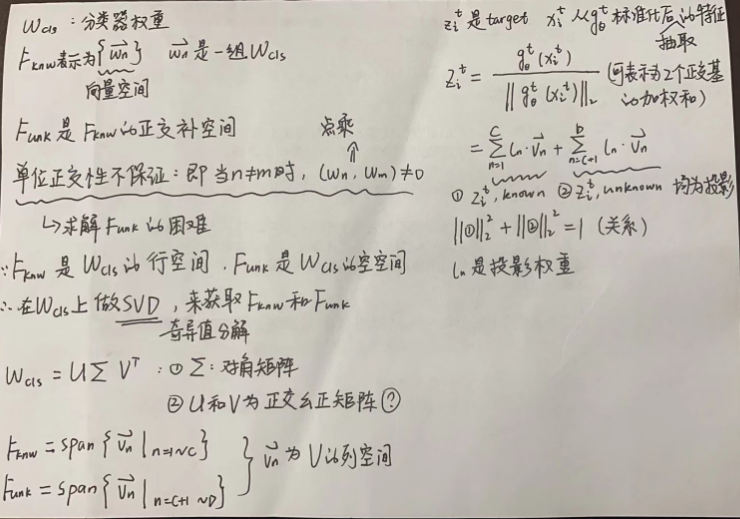 Wcls：分类器权重
Fknw表示为{wn} wn是一组Wcls
向量空间
Funk是Fknw的正交补空间
点乘
单位正交性不保证：即当n≠m时，(wn, wm)≠0
↳求解Funk的困难
∵Fknw是Wcls的行空间，Funk是Wcls的空空间
∴在Wcls上做SVD，来获取Fknw和Funk
奇异值分解
Wcls = UΣV^T：① Σ：对角矩阵
② U和V为正交幺正矩阵?
Fknw = span{vn | n=1~C}
Funk = span{vn | n=C+1~D}
} vn为V的列空间
zi^t是target xi^t从gθ^t标准化后的特征
抽取
zi^t = gθ^t(xi^t) / ||gθ^t(xi^t)||2 (可表示为2个正交基
的加权和)
= Σ(n=1, C) ln·vn + Σ(n=C+1, D) ln·vn
① zi^t, known ② zi^t, unknown 均为投影
||①||2^2 + ||②||2^2 = 1 (关系)
ln是投影权重